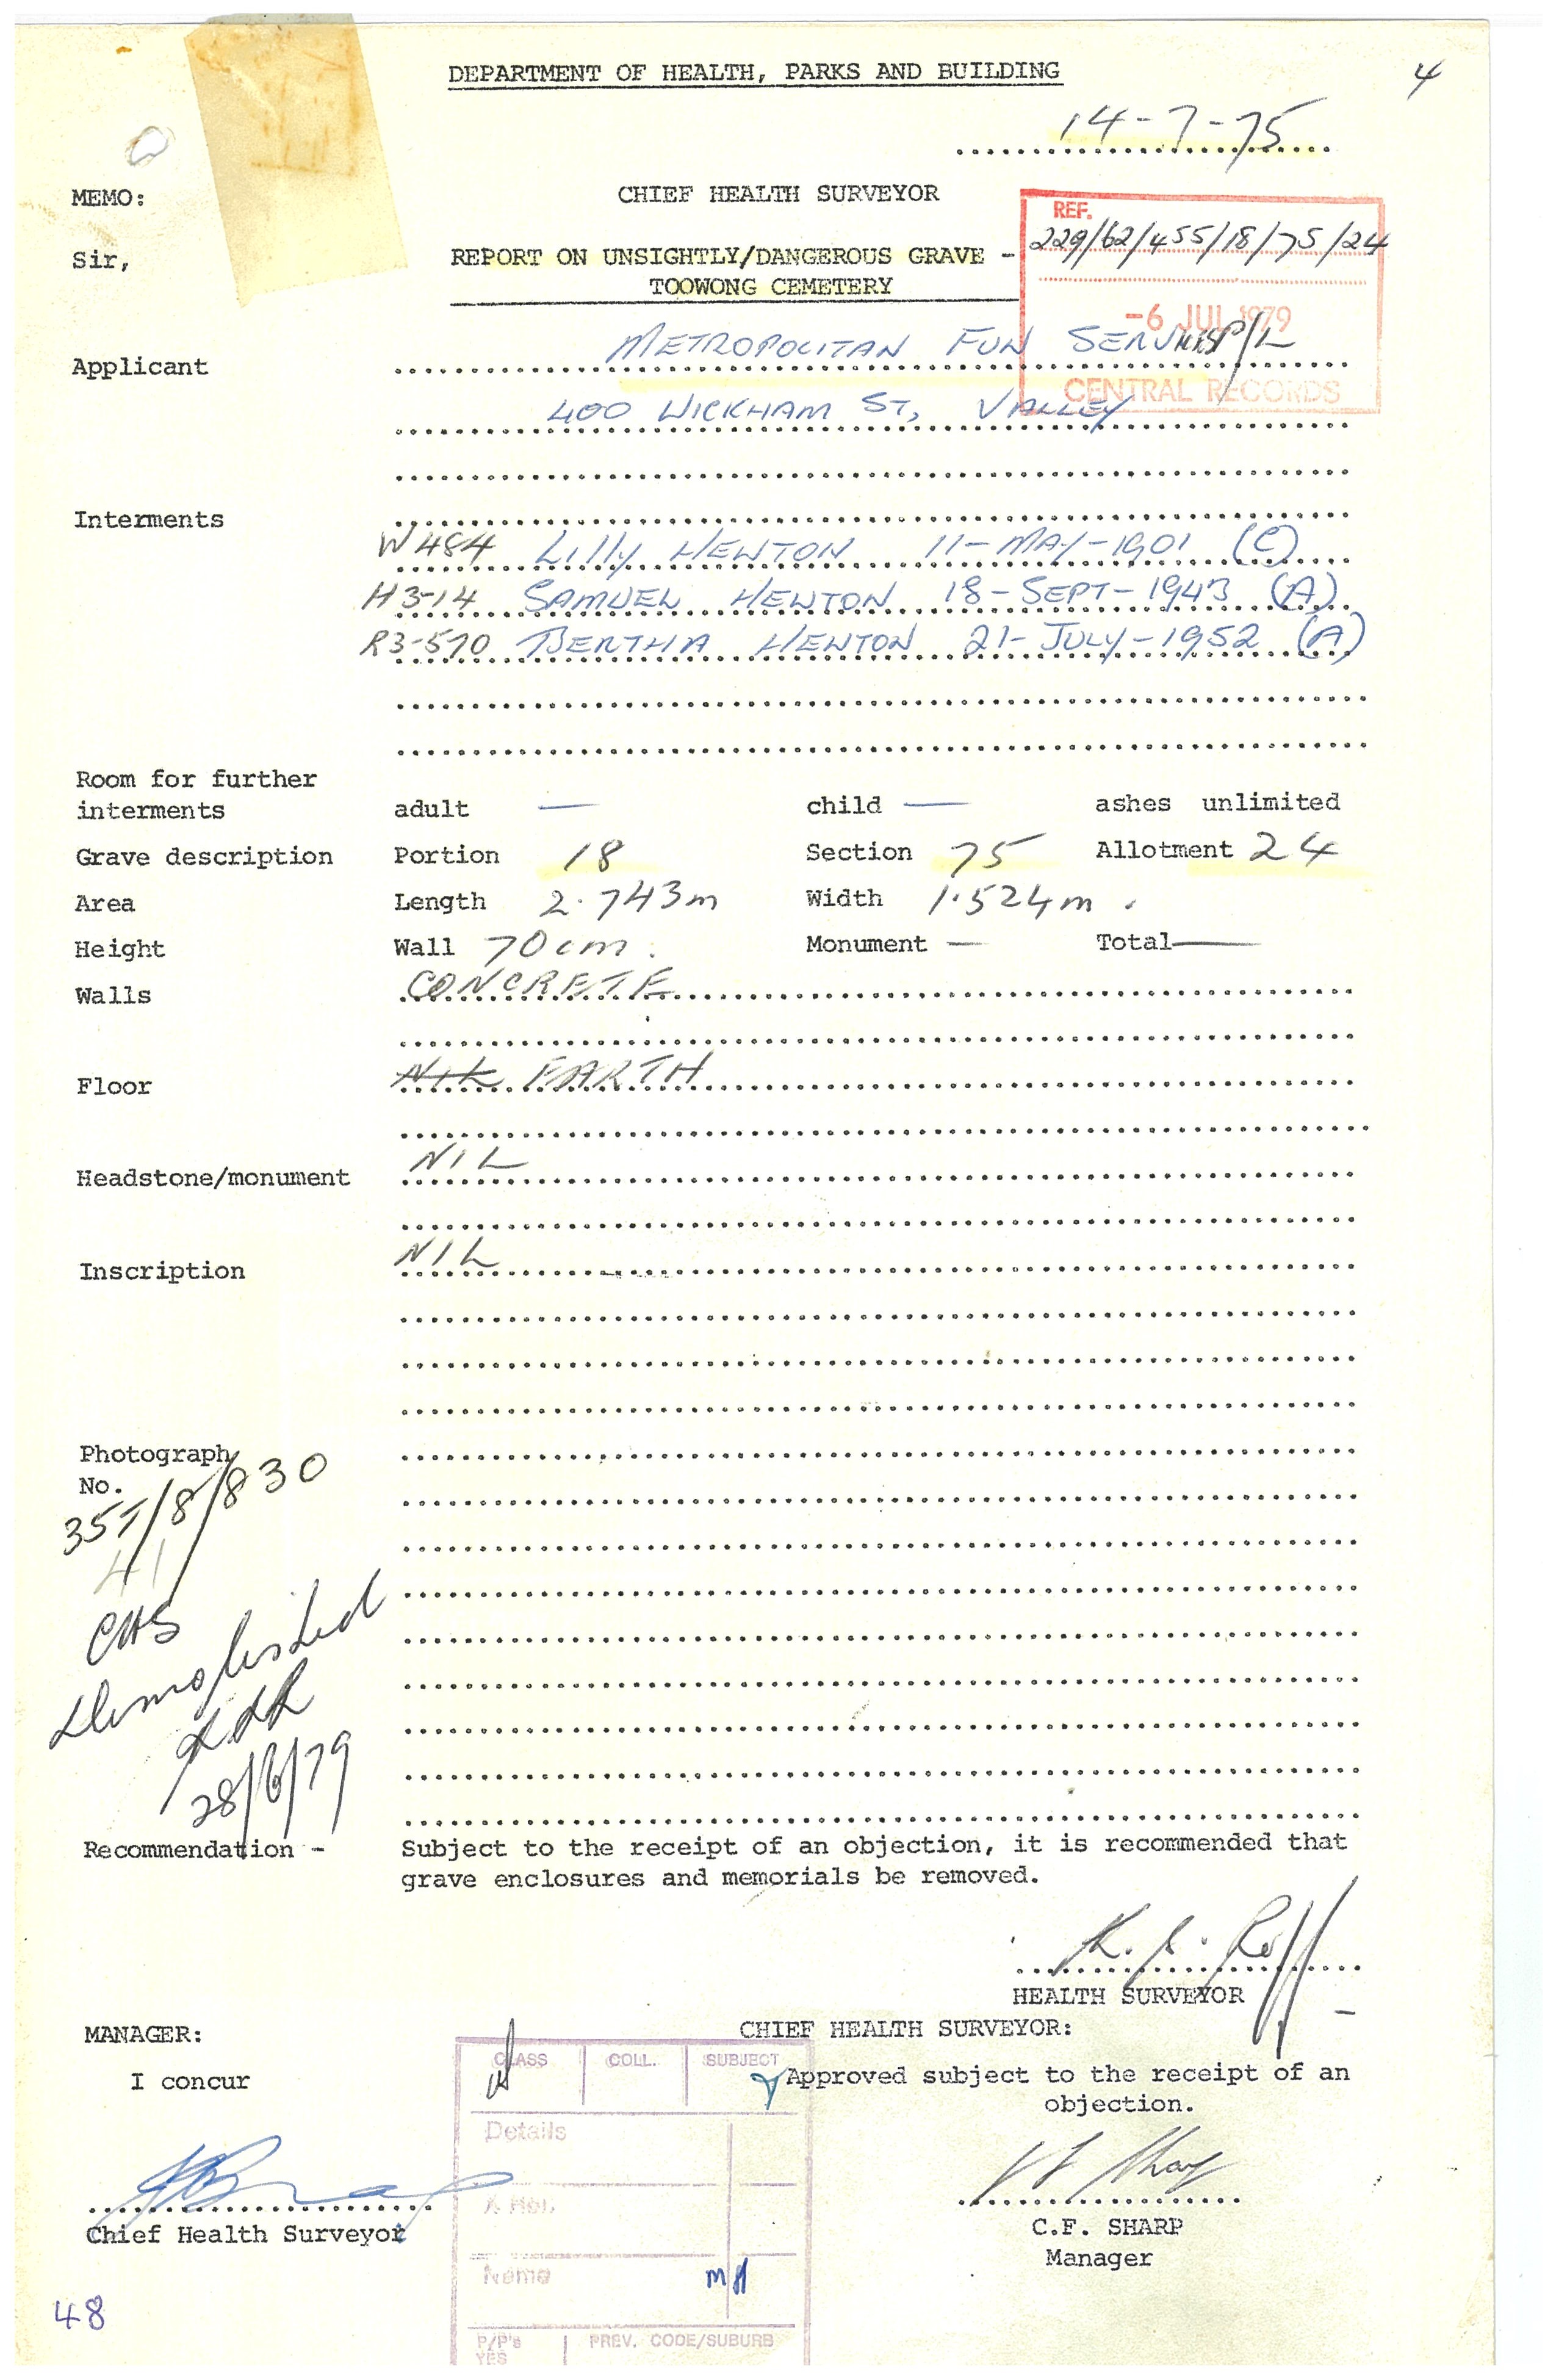 DEPARTMENT OF HEALTH, PARKS AND BUILDING
4
14-7-75
MEMO:
CHIEF HEALTH SURVEYOR
REF.
229/62/455/18/75/24
Sir,
REPORT ON UNSIGHTLY/DANGEROUS GRAVE -
TOOWONG CEMETERY
-6 JUL 1979
CENTRAL RECORDS
Applicant
METROPOLITAN FUN SERVICES P/L
400 WICKHAM ST, VALLEY
Interments
W484 LILLY HEWTON 11-MAY-1901 (C)
H3-14 SAMUEL HEWTON 18-SEPT-1943 (A)
R3-570 BERTHA HEWTON 21-JULY-1952 (A)
Room for further
interments adult — child — ashes unlimited
Grave description Portion 18 Section 75 Allotment 24
Area Length 2.743m Width 1.524m.
Height Wall 70cm. Monument — Total —
Walls CONCRETE
Floor NIL EARTH
Headstone/monument NIL
Inscription NIL
Photograph
No.
357/8/830
41
CHS
Demolished
28/6/79
Recommendation - Subject to the receipt of an objection, it is recommended that
grave enclosures and memorials be removed.
HEALTH SURVEYOR
MANAGER:
CHIEF HEALTH SURVEYOR:
I concur
Approved subject to the receipt of an
objection.
Chief Health Surveyor
C.F. SHARP
Manager
CLASS COLL. SUBJECT
Details
Name
MH
P/P's
YES
PREV. CODE/SUBURB
48